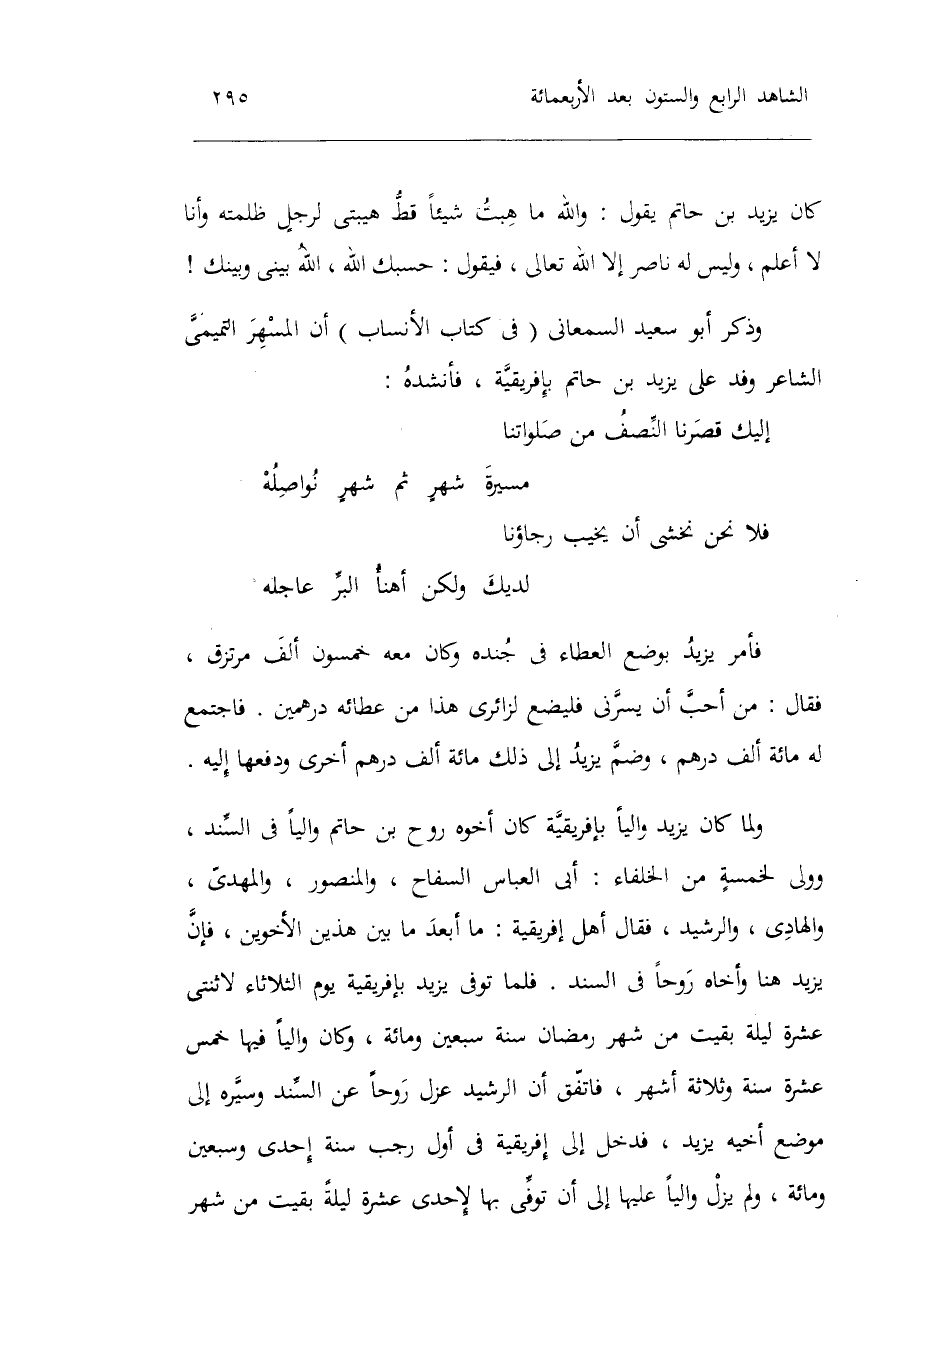 الشاهد الرابع والستون بعد الأربعمائة ٢٩٥
كان يزيد بن حاتم يقول : والله ما هِبتُ شيئاً قطُّ هيبتى لرجلٍ ظلمته وأنا
لا أعلم ، وليس له ناصر إلا الله تعالى ، فيقول : حسبك الله ، اللهُ بينى وبينك !
وذكر أبو سعيد السمعانى ( فى كتاب الأنساب ) أن المسْهِرَ التميمىَّ
الشاعر وفد على يزيد بن حاتم بإفريقيَّة ، فأنشدهُ :
إليك قصَرنا النِّصفُ من صلواتنا
مسيرةَ شهرٍ ثم شهرٍ نُواصِلُهْ
فلا نحن نخشى أن يخيب رجاؤنا
لديكَ ولكن أهنأُ البرِّ عاجله
فأمر يزيدُ بوضع العطاء فى جُنده وكان معه خمسون ألفَ مرتزق ،
فقال : من أحبَّ أن يسرَّنى فليضع لزائرى هذا من عطائه درهمين . فاجتمع
له مائة ألف درهم ، وضمَّ يزيدُ إلى ذلك مائة ألف درهم أخرى ودفعها إليه .
ولما كان يزيد والياً بإفريقيَّة كان أخوه روح بن حاتم والياً فى السِّند ،
وولى لخمسةٍ من الخلفاء : أبى العباس السفاح ، والمنصور ، والمهدىّ ،
والهادِى ، والرشيد ، فقال أهل إفريقية : ما أبعدَ ما بين هذين الأخوين ، فإنَّ
يزيد هنا وأخاه رَوحاً فى السند . فلما توفى يزيد بإفريقية يوم الثلاثاء لاثنتى
عشرة ليلة بقيت من شهر رمضان سنة سبعين ومائة ، وكان والياً فيها خمس
عشرة سنة وثلاثة أشهر ، فاتفّق أن الرشيد عزل رَوحاً عن السِّند وسيَّره إلى
موضع أخيه يزيد ، فدخل إلى إفريقية فى أول رجب سنة إحدى وسبعين
ومائة ، ولم يزلْ والياً عليها إلى أن توفِّى بها لإحدى عشرة ليلةً بقيت من شهر